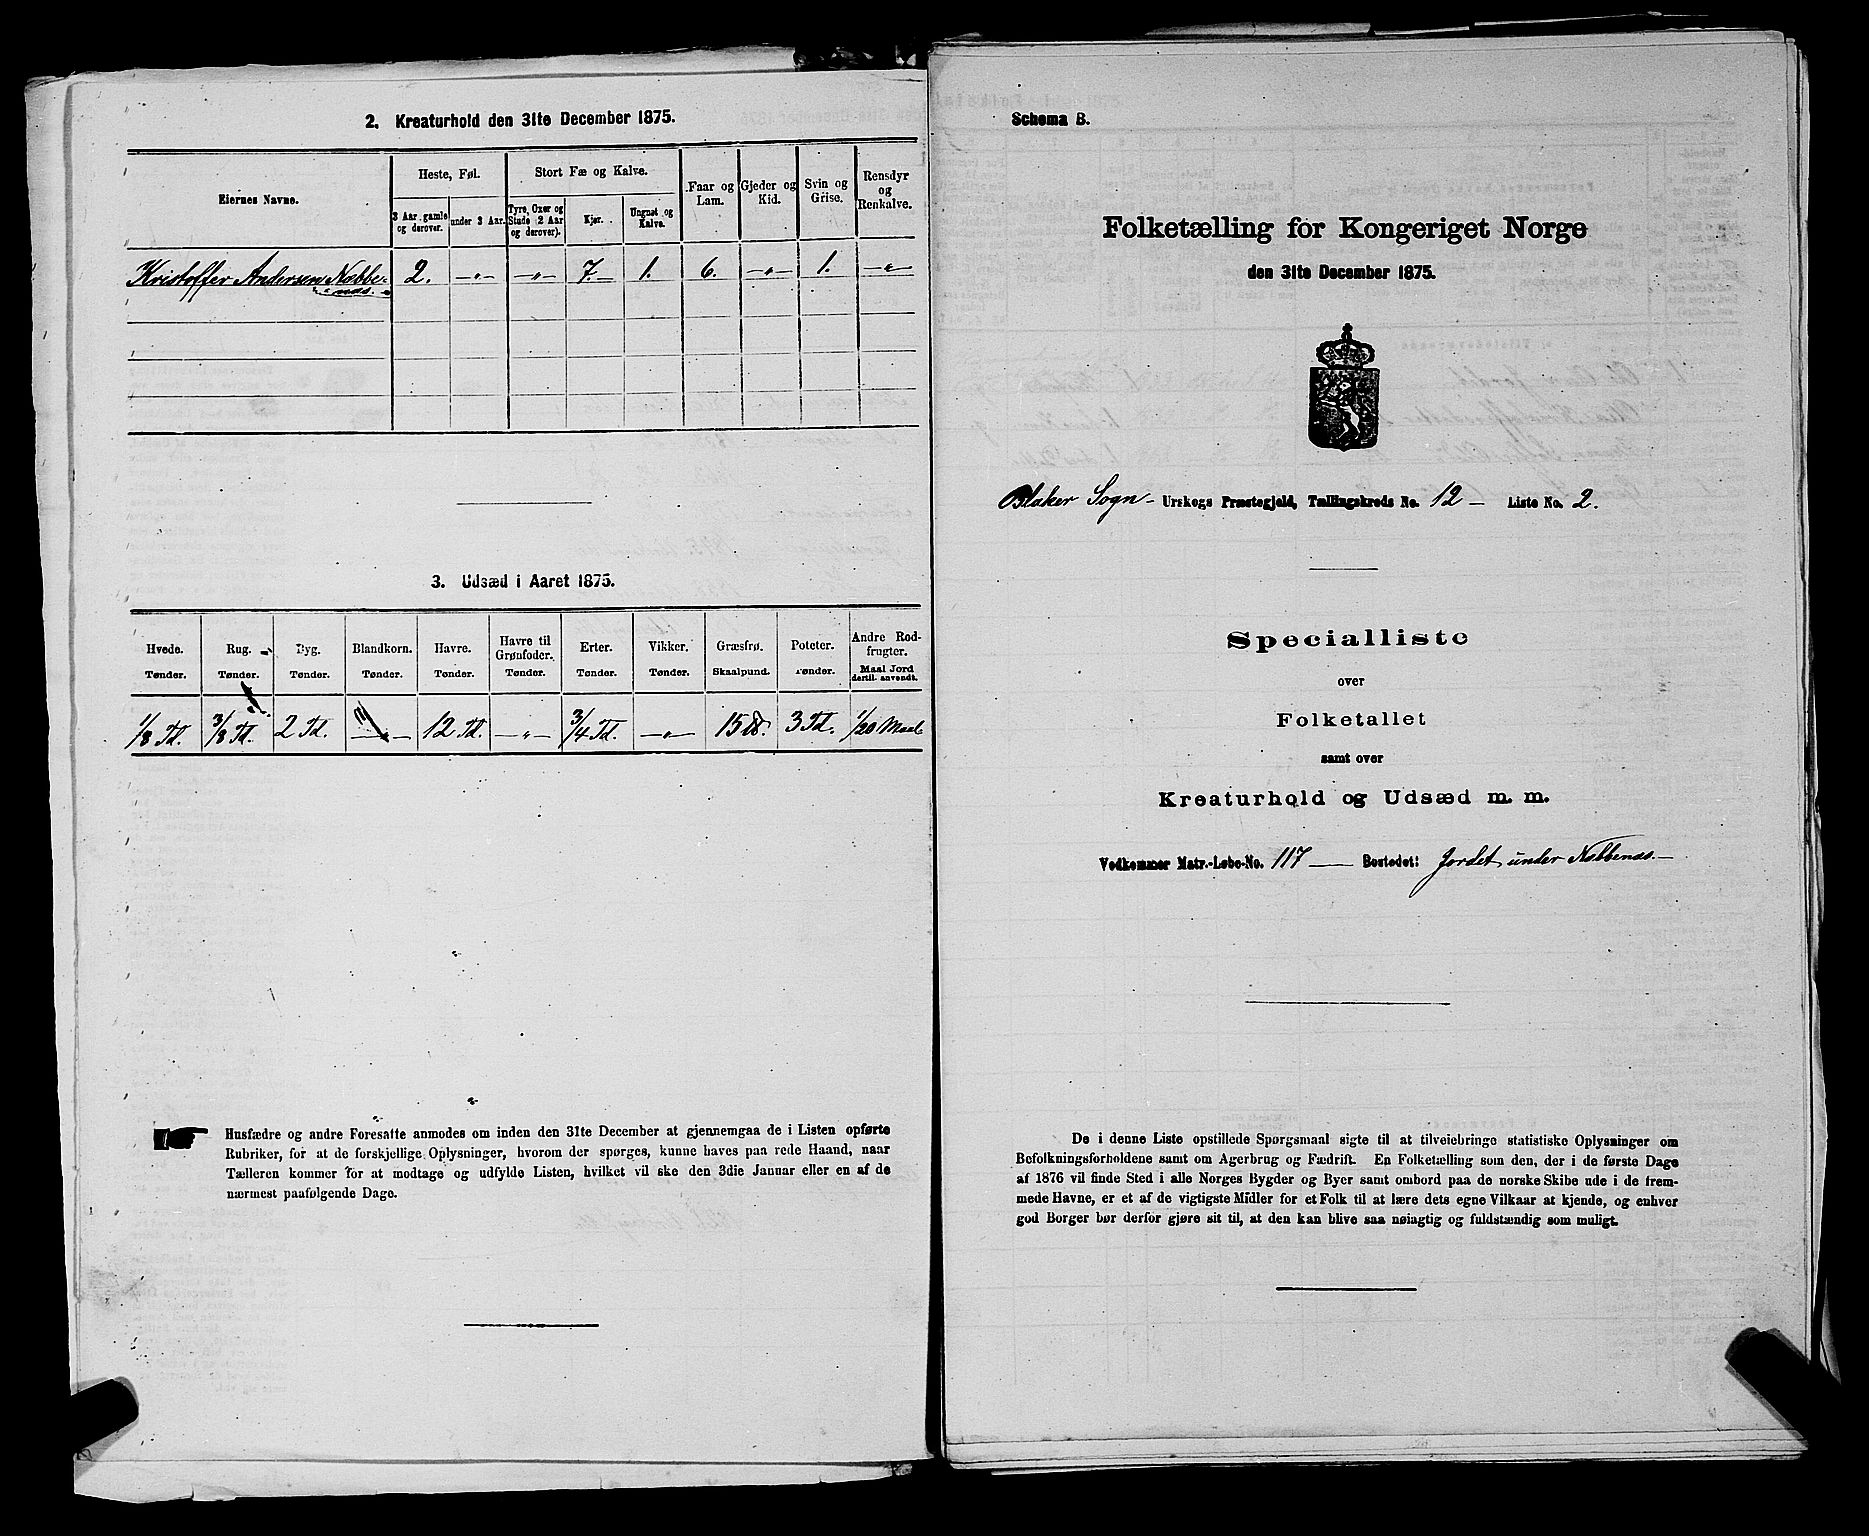 2. Kreaturhold den 31te December 1875.
Eiernes Navne.
Heste, Føl.
Stort Fæ og Kalve.
Faar og Lam.
Gjeder og Kid.
Svin og Grise.
Rensdyr og Renkalve.
3 Aar gamle og derover.
under 3 Aar.
Tyre, Oxer og Stude (2 Aar og derover).
Kjør.
Ungnøt og Kalve.
Kristoffer Andersen Næbbe- 2. -"- -"- 7.- 1. 6. -"- 1. -"-
næs.
3. Udsæd i Aaret 1875.
Hvede. Rug. Byg. Blandkorn. Havre. Havre til Grønfoder. Erter. Vikker. Græsfrø. Poteter. Andre Rodfrugter.
Tønder. Tønder. Tønder. Tønder. Tønder. Tønder. Tønder. Tønder. Skaalpund. Tønder. Maal Jord dertil anvendt.
1/8 Td. 3/8 Td. 2 Td. -"- 12 Td. -"- 3/4 Td. -"- 15 ℔. 3 Td. 1/20 Maal
Husfædre og andre Foresatte anmodes om inden den 31te December at gjennemgaa de i Listen opførte
Rubriker, for at de forskjellige Oplysninger, hvorom der spørges, kunne haves paa rede Haand, naar
Tælleren kommer for at modtage og udfylde Listen, hvilket vil ske den 3die Januar eller en af de
nærmest paafølgende Dage.
Schema B.
Folketælling for Kongeriget Norge
den 31te December 1875.
Blaker Sogn - Urskogs Præstegjeld, Tællingskreds No. 12 - Liste No. 2.
Specialliste
over
Folketallet
samt over
Kreaturhold og Udsæd m. m.
Vedkommer Matr.-Løbe-No. 117 - Bostedet: Jordet under Næbbenæs. -
De i denne Liste opstillede Spørgsmaal sigte til at tilveiebringe statistiske Oplysninger om
Befolkningsforholdene samt om Agerbrug og Fædrift. En Folketælling som den, der i de første Dage
af 1876 vil finde Sted i alle Norges Bygder og Byer samt ombord paa de norske Skibe ude i de frem-
mede Havne, er et af de vigtigste Midler for et Folk til at lære dets egne Vilkaar at kjende, og enhver
god Borger bør derfor gjøre sit til, at den kan blive saa nøiagtig og fuldstændig som muligt.